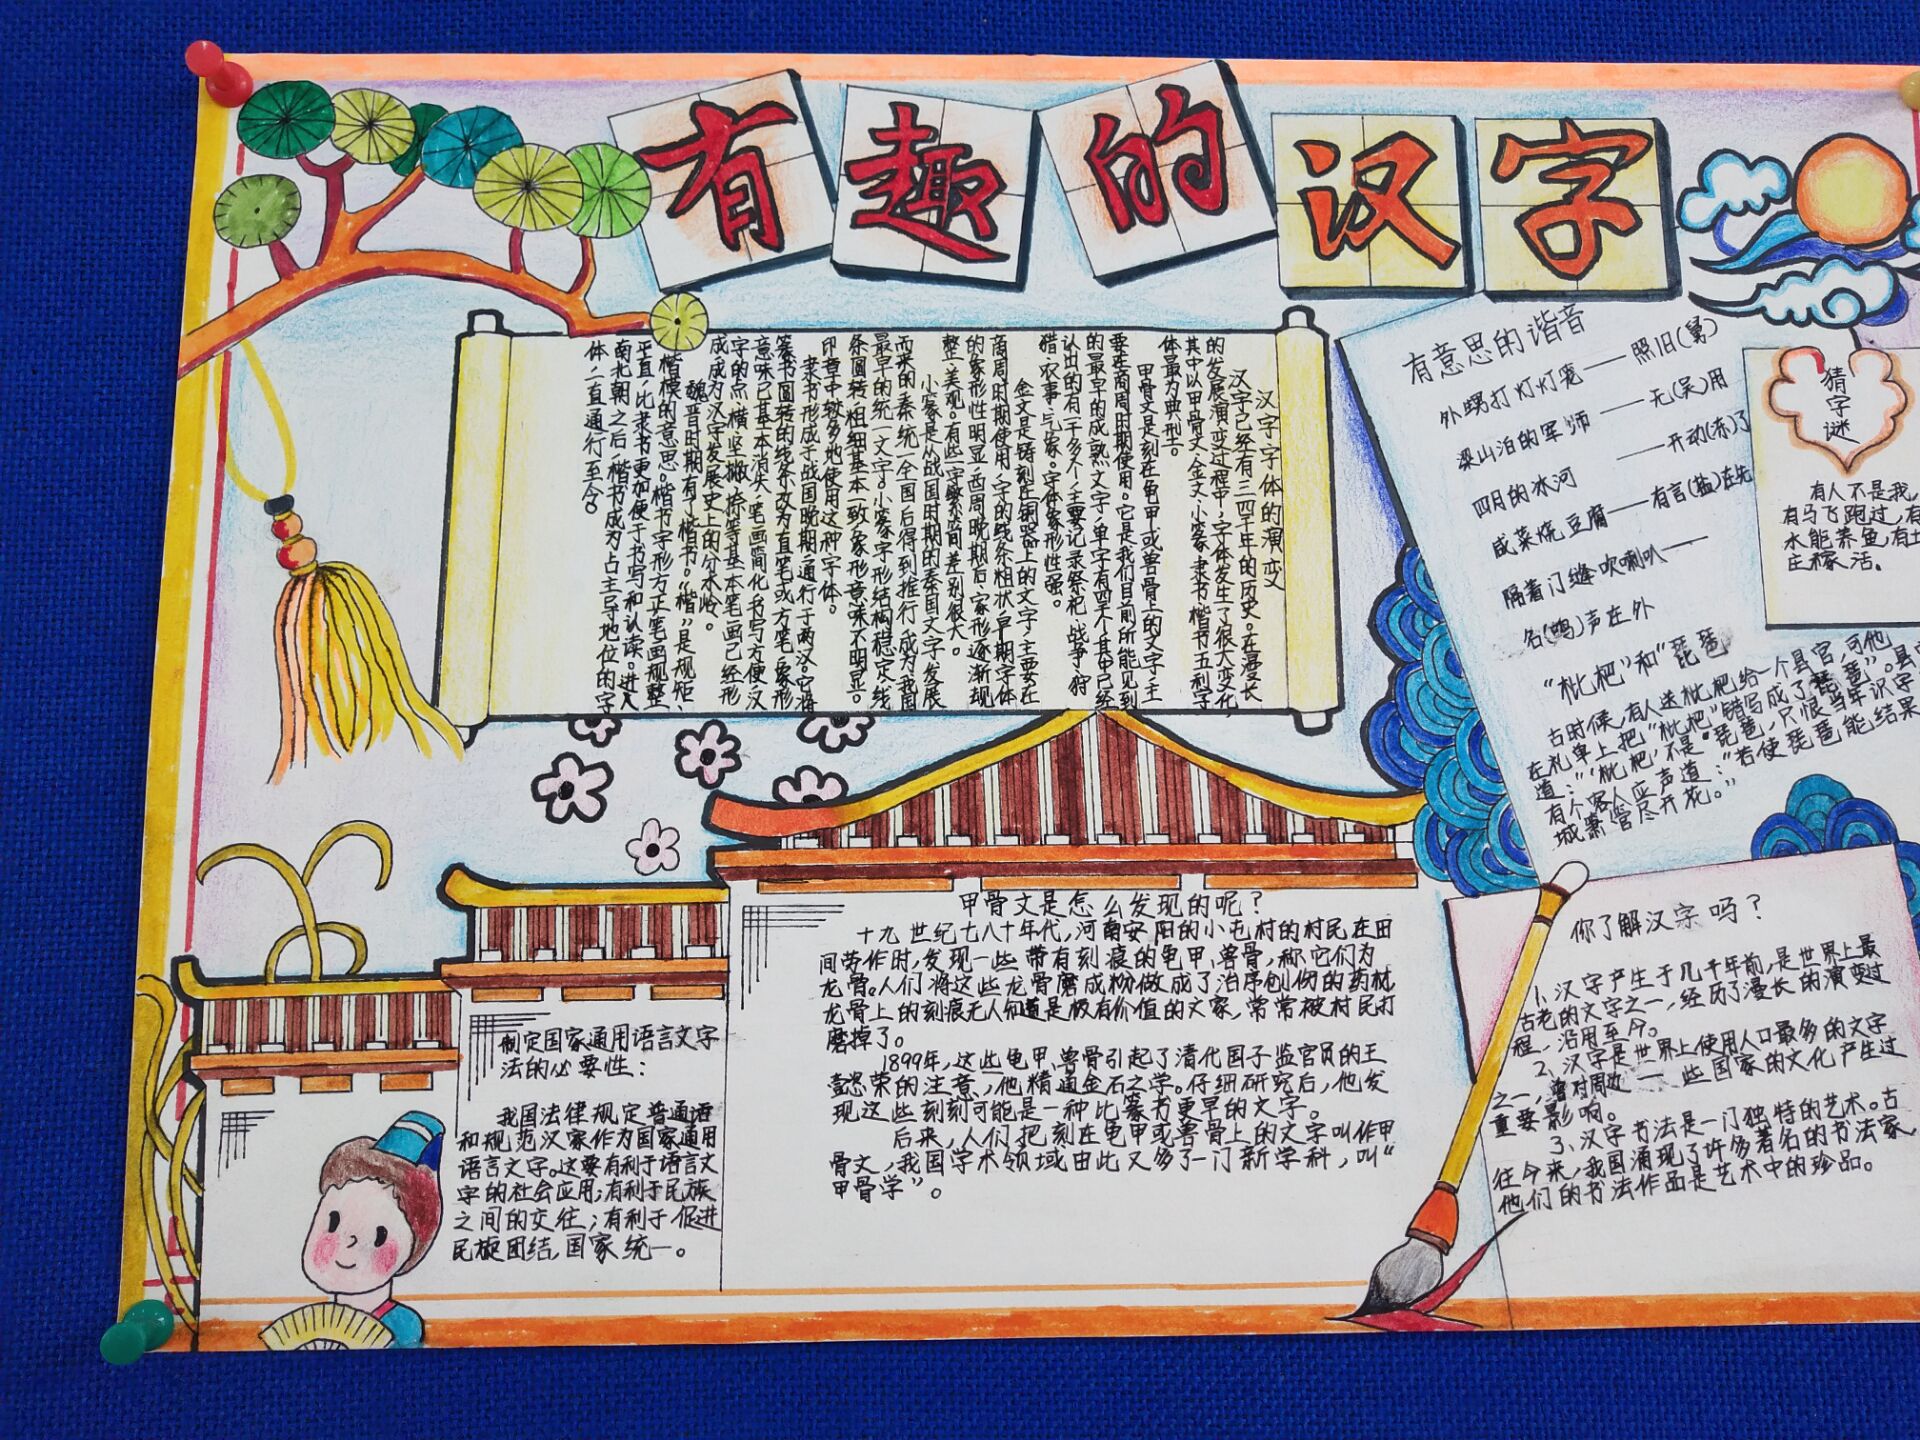 有趣的汉字
汉字字体的演变
汉字已经有三四千年的历史。在漫长
的发展演变过程中,字体发生了很大变化,
其中以甲骨文、金文、小篆、隶书、楷书五利字
体最为典型。
甲骨文是刻在龟甲或兽骨上的文字,主
要在商周时期使用。它是我们目前所能见到
的最早的成熟文字,单字有四千个,其中已经
认出的有一千多个,主要记录祭祀、战争、狩
猎、农事、气象。字体象形性强。
金文是铸刻在铜器上的文字,主要在
商周时期使用,字的线条粗状,早期字体
的象形性明显,西周晚期后,象形逐渐规
整、美观。有些字繁简差别很大。
小篆是从战国时期的秦国文字发展
而来的,秦统一全国后得到推行,成为我国
最早的统一文字。小篆字形结构稳定,线
条圆转,粗细基本一致,象形意味不明显。
印章中较多地使用这种字体。
隶书形成于战国晚期,通行于两汉。它将
篆书圆转的线条改为直笔或方笔,象形
意味已基本消失,笔画简化,书写方便,汉
字的点、横、竖、撇、捺等基本笔画已经形
成,成为汉字发展史上的分水岭。
魏晋时期有了楷书。“楷”是规矩、
楷模的意思。楷书字形方正,笔画规整
平直,比隶书更加便于书写和认读。进入
南北朝之后,楷书成为占主导地位的字
体,一直通行至今。
有意思的谐音
外甥打灯灯笼——照旧(舅)
梁山泊的军师——无(吴)用
四月的冰河——开动(冻)了
咸菜烧豆腐——有言(盐)在先
隔着门缝吹喇叭——
名(鸣)声在外
“枇杷”和“琵琶
古时候,有人送枇杷给一个县官,可他
在礼单上把“枇杷”错写成了“琵琶”。县官
道:“‘枇杷’不是‘琵琶,只恨当年识字
有个客人应声道:“若使琵琶能结果
城萧管尽开花。”
猜字谜
有人不是我,
有马飞跑过,有
水能养鱼,有土
庄稼活。
制定国家通用语言文字
法的必要性:
我国法律规定普通话
和规范汉家作为国家通用
语言文字。这要有利于语言文
字的社会应用;有利于民族
之间的交往;有利于促进
民族团结,国家统一。
甲骨文是怎么发现的呢?
十九世纪七八十年代,河南安阳的小屯村的村民在田
间劳作时,发现一些带有刻痕的龟甲、兽骨,称它们为
龙骨。人们将这些龙骨磨成粉做成了治疗创伤的药材,
龙骨上的刻痕无人知道是极有价值的文家,常常被村民打
磨掉了。
1899年,这些龟甲、兽骨引起了清代国子监官员的王
懿荣的注意,他精通金石之学。仔细研究后,他发
现这些刻刻可能是一种比篆书更早的文字。
后来,人们把刻在龟甲或兽骨上的文字叫作甲
骨文,我国学术领域由此又多了一门新学科,叫“
甲骨学”。
你了解汉字吗?
1、汉字产生于几千年前,是世界上最
古老的文字之一,经历了漫长的演变过
程,沿用至今。
2、汉字是世界上使用人口最多的文字
之一,曾对周边一些国家的文化产生过
重要影响。
3、汉字书法是一门独特的艺术。古
往今来,我国涌现了许多著名的书法家,
他们的书法作品是艺术中的珍品。